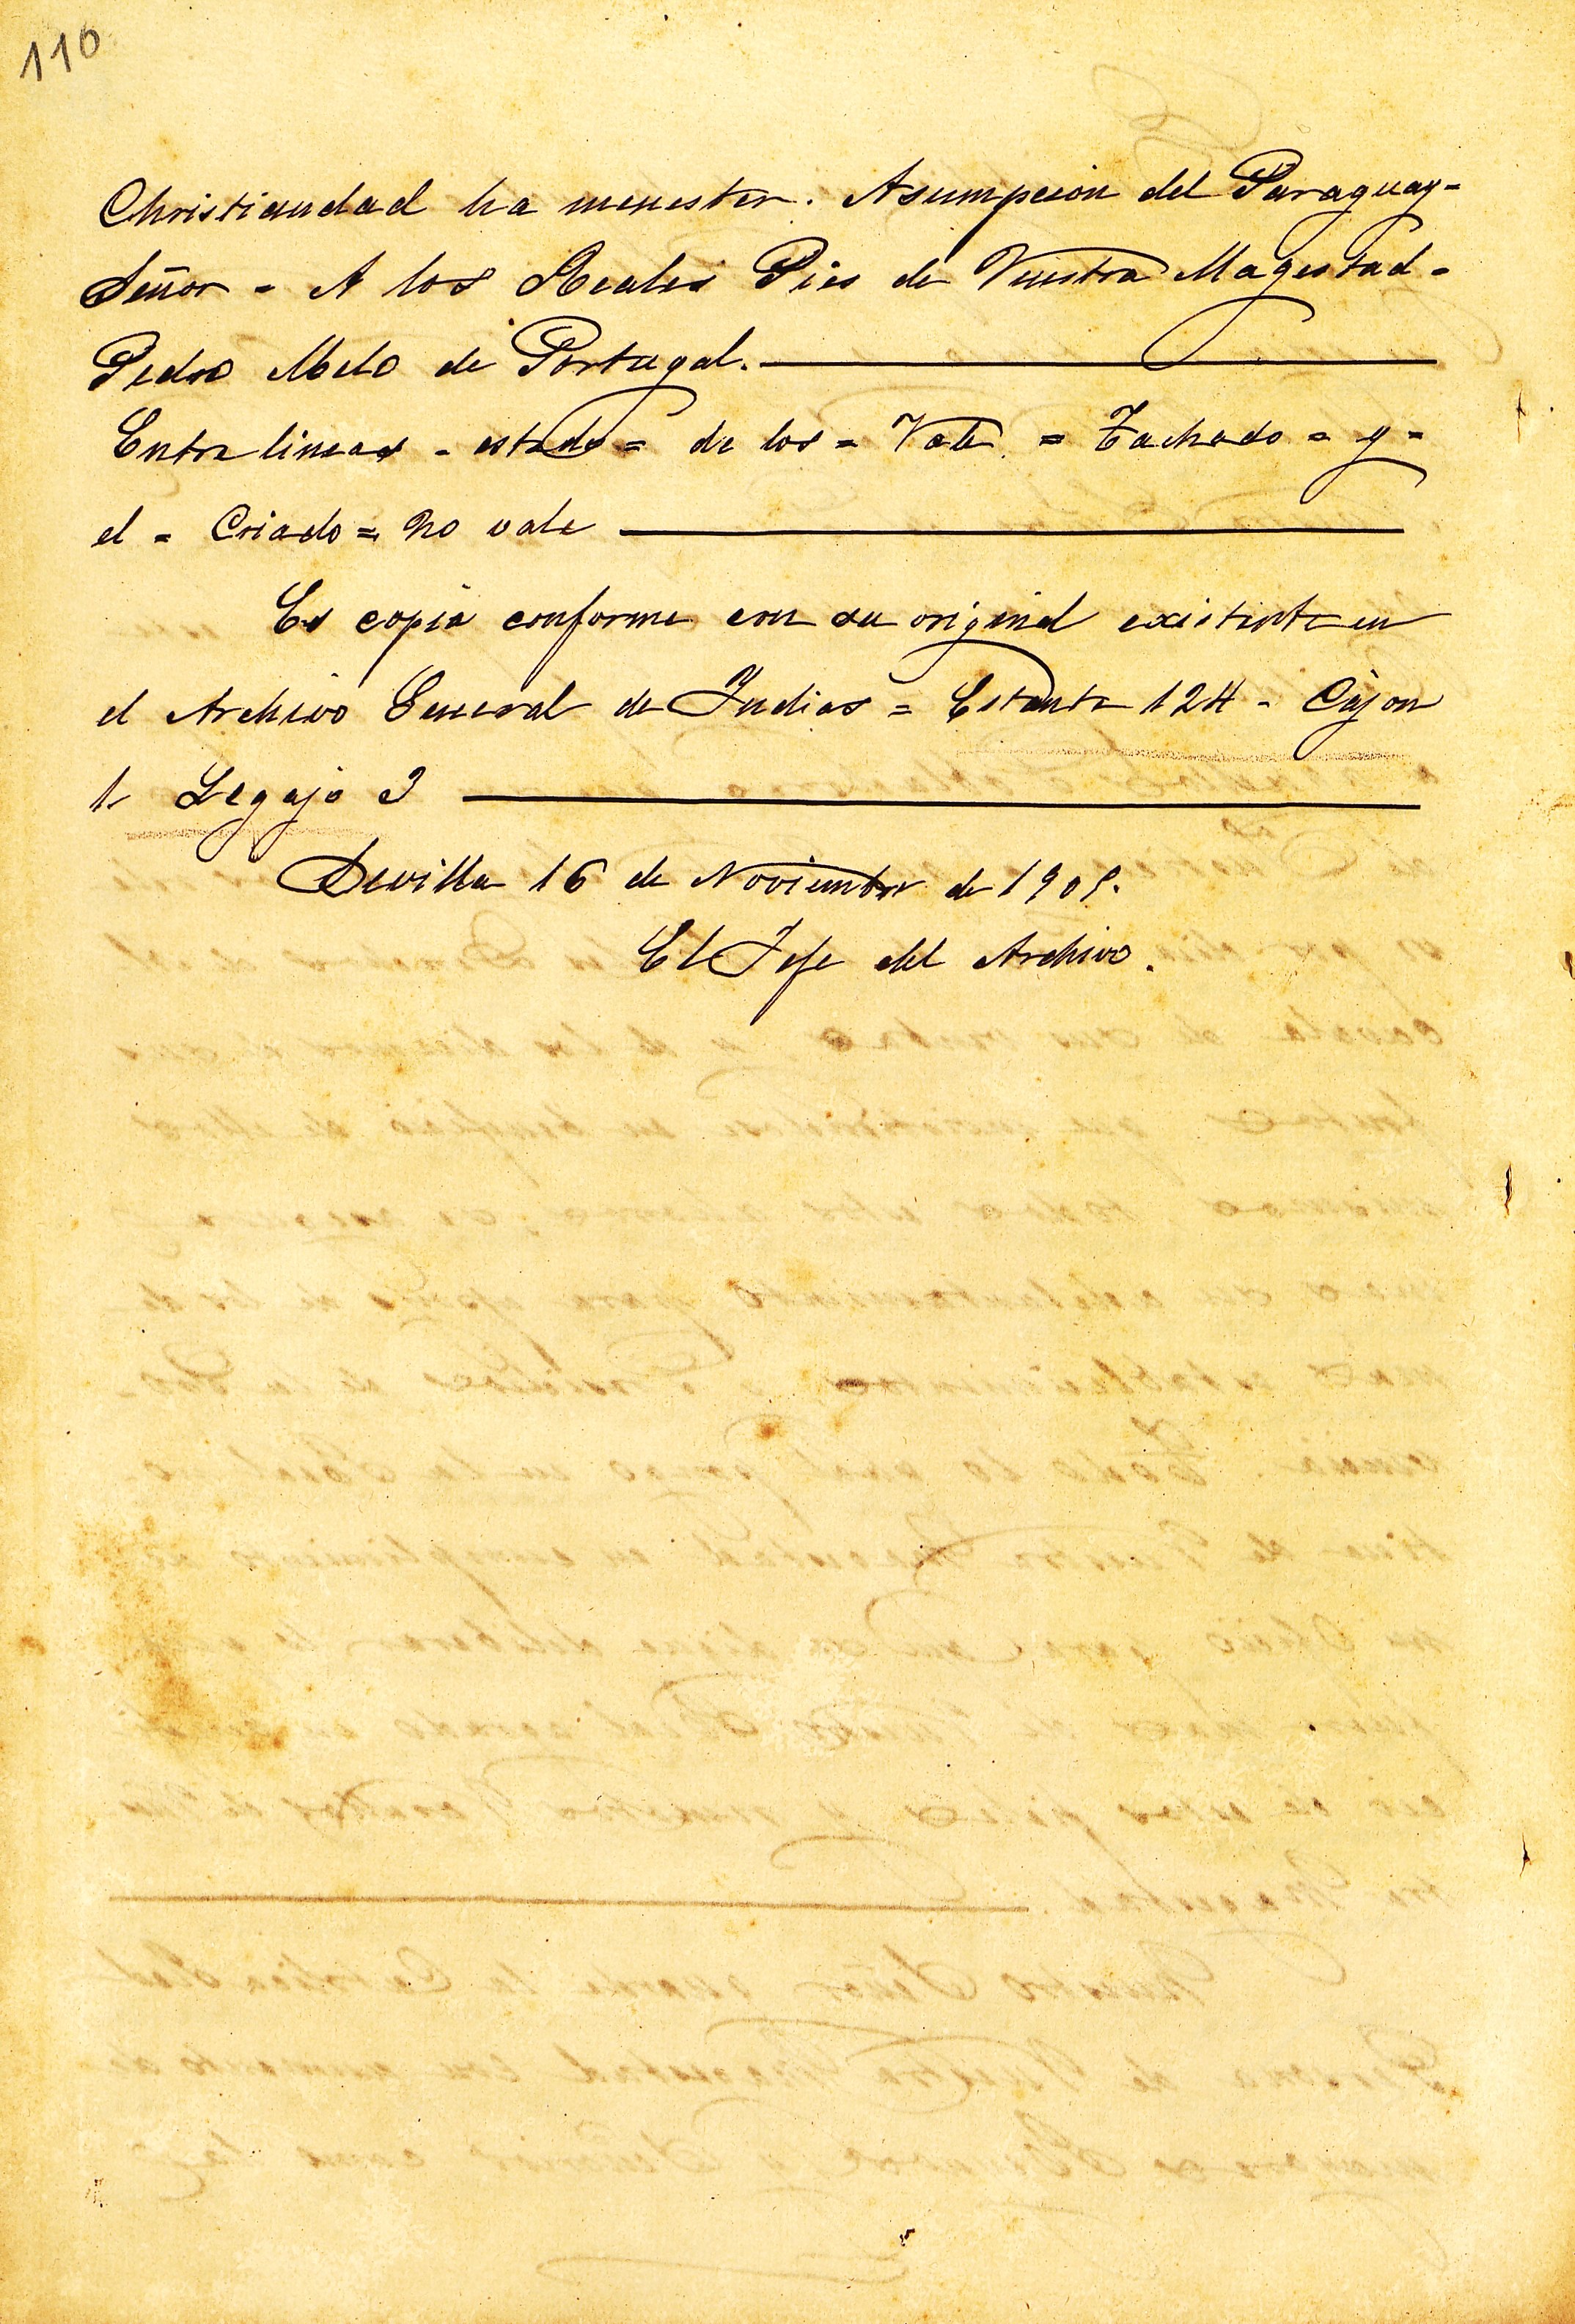 110
Christiandad ha menester. Asumpcion del Paraguay=
Señor = A los Reales Pies de Vuestra Magestad =
Pedro Melo de Portugal.
Entre lineas = estado = de los = Vale = Tachado = y =
el = Criado = no vale
Es copia conforme con su original existente en
el Archivo General de Indias = Estante 124 = Cajon
1- Legajo 2
Sevilla 16 de Noviembre de 1905.
El Jefe del Archivo.